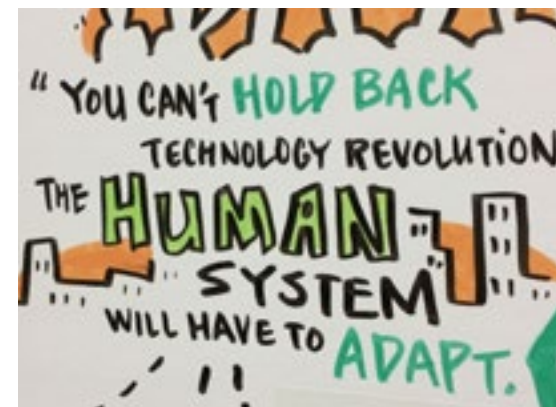 " YOU CAN'T HOLD BACK
TECHNOLOGY REVOLUTION
THE HUMAN
SYSTEM"
WILL HAVE TO ADAPT.